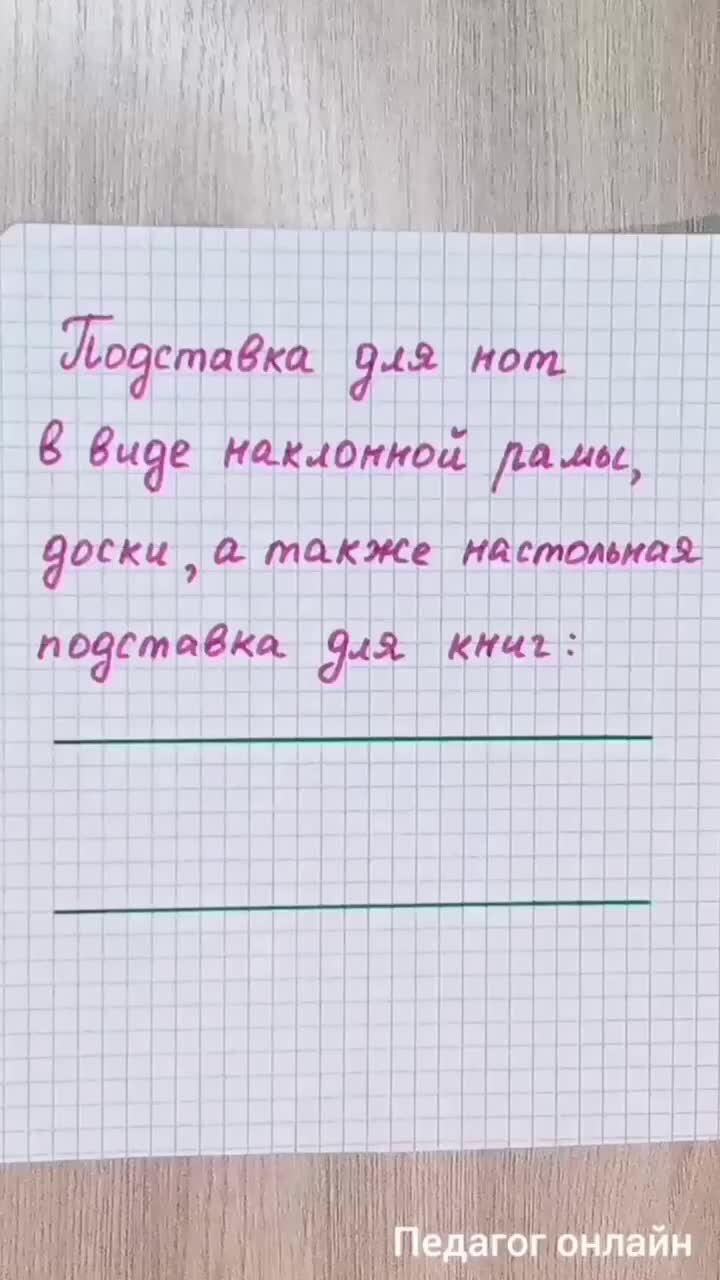 Подставка для нот
в виде наклонной рамы,
доски, а также настольная
подставка для книг:
Педагог онлайн